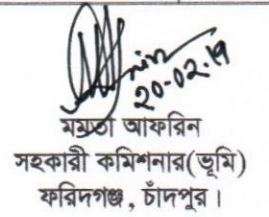 20-02-19
মমতা আফরিন
সহকারী কমিশনার(ভূমি)
ফরিদগঞ্জ, চাঁদপুর।